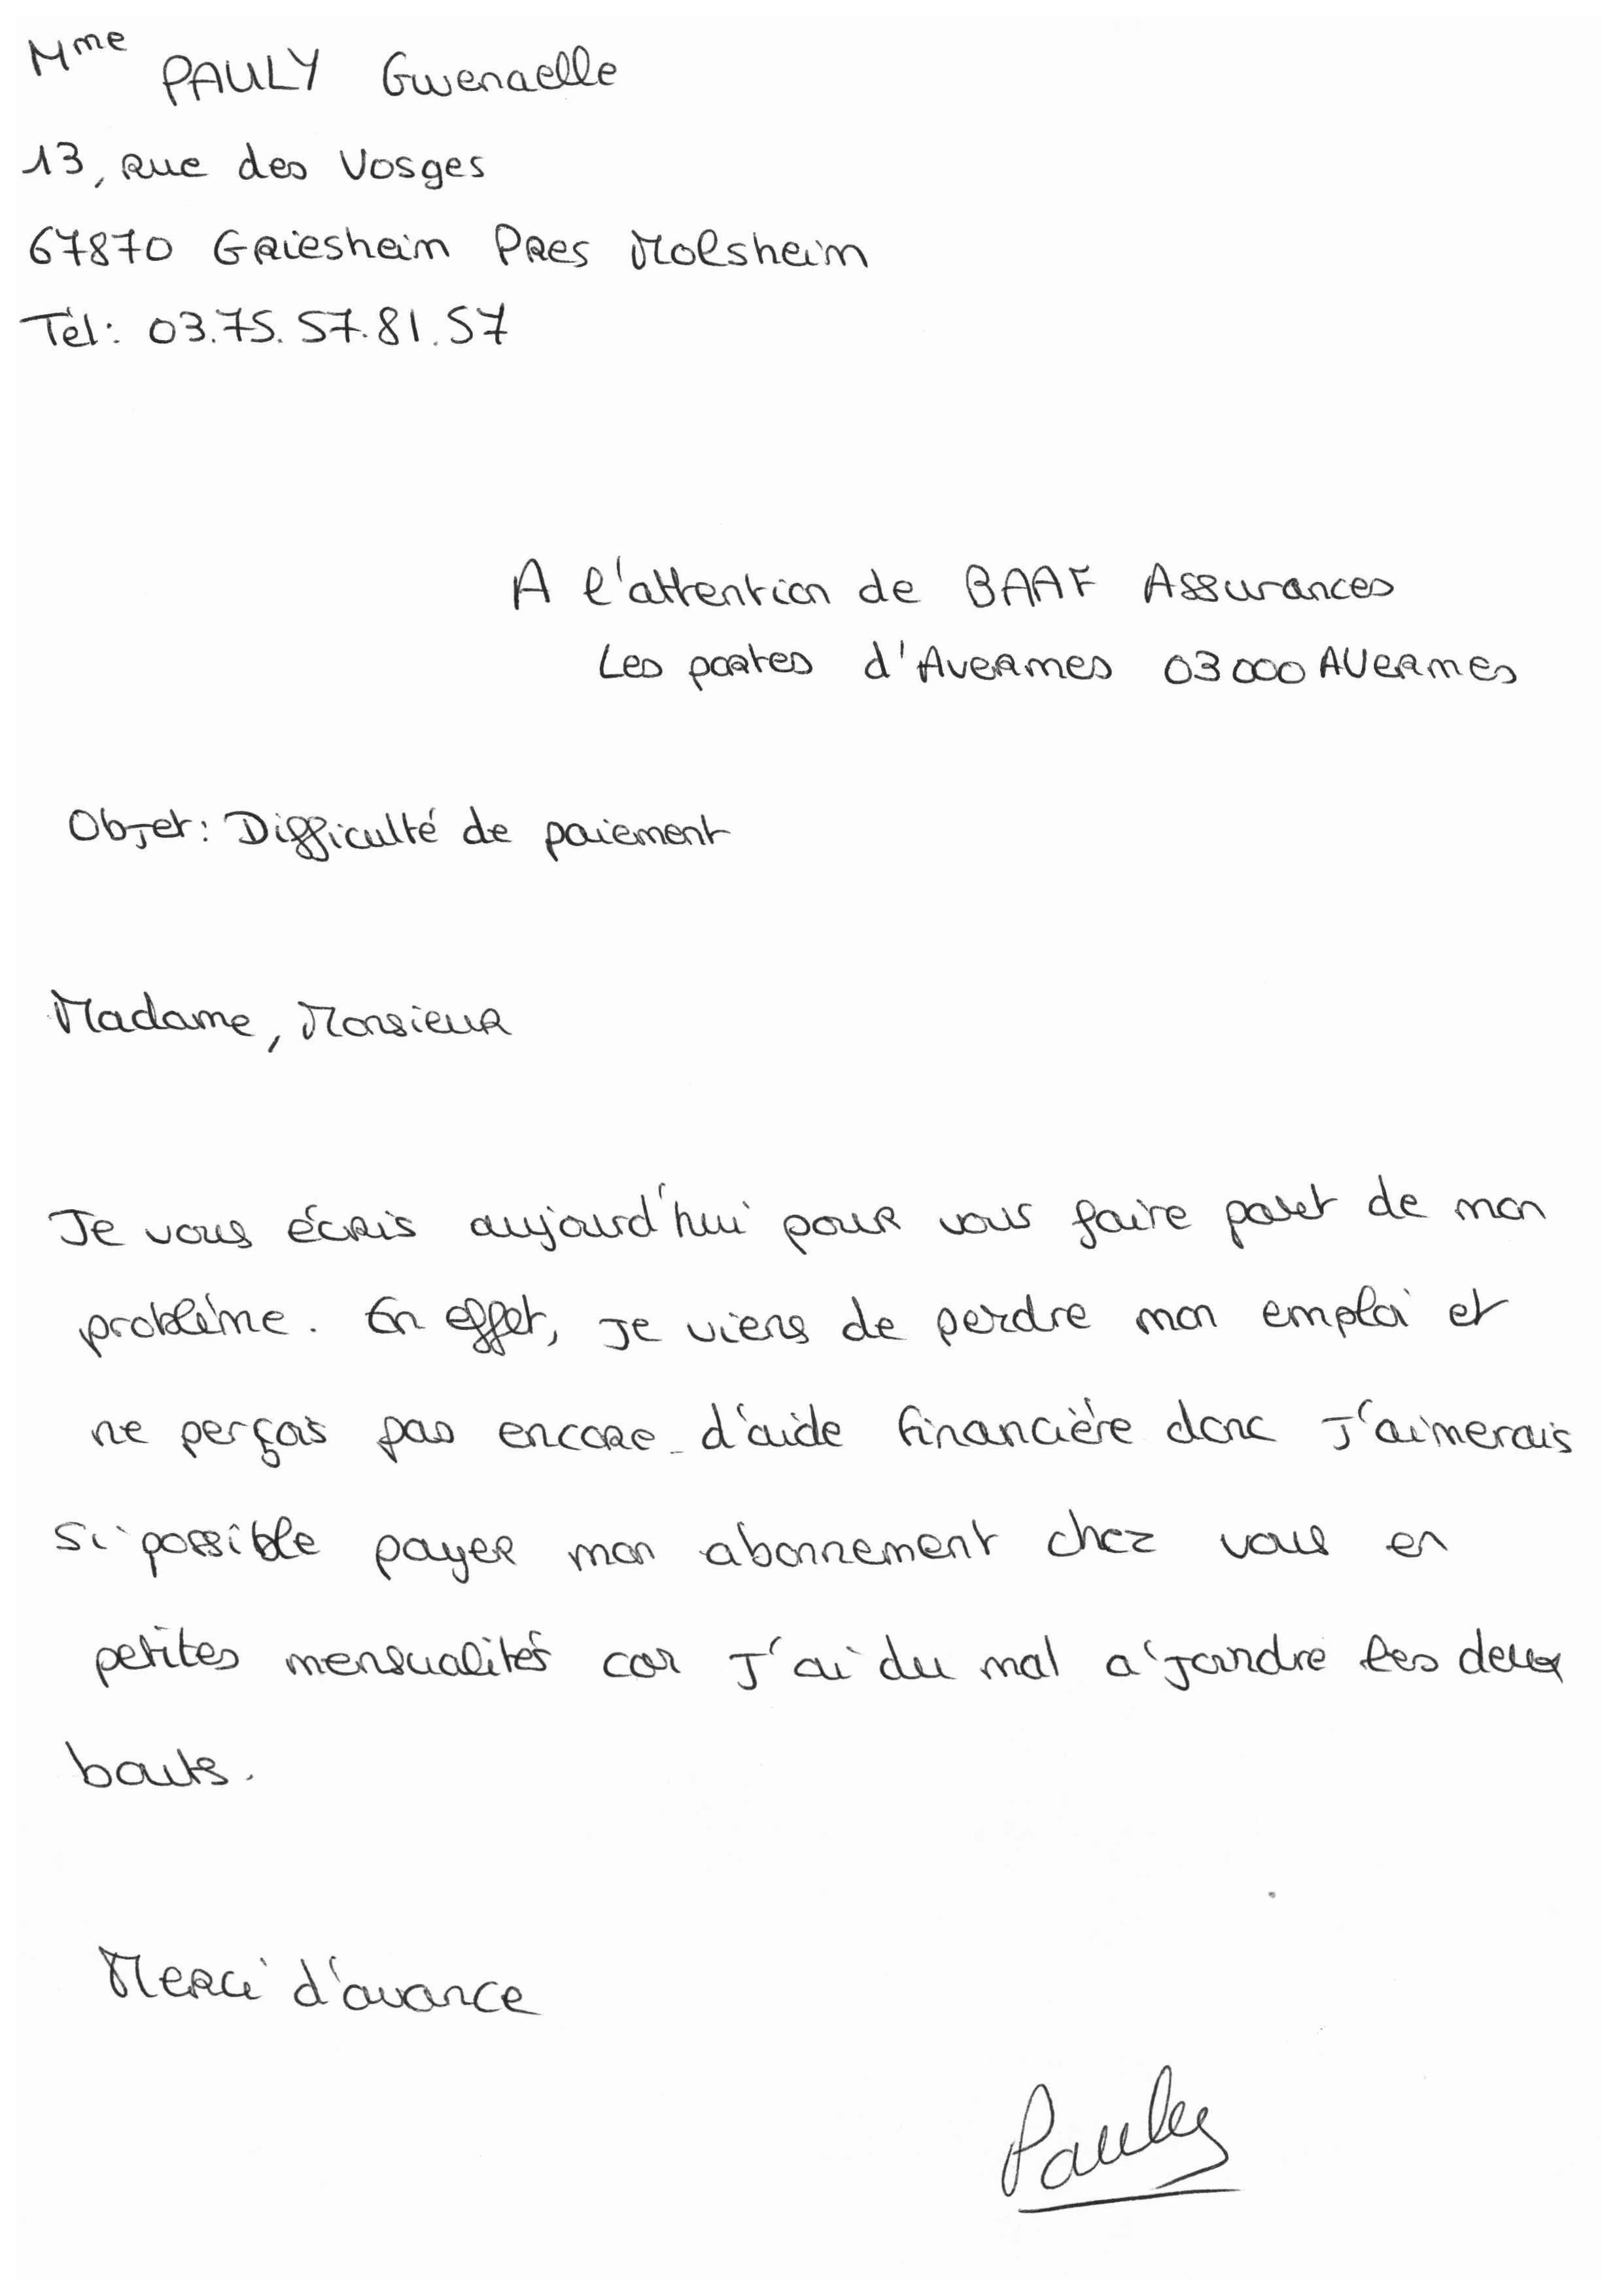 Mme PAULY Gwenaelle
13, rue des Vosges
67870 Griesheim Pres Molsheim
Tél: 03.75.57.81.57
A l'attention de BAAF Assurances
Les portes d'Avermes 03000 Avermes
Objet: Difficulté de paiement
Madame, Monsieur
Je vous écris aujourd'hui pour vous faire part de mon
problème. En effet, je viens de perdre mon emploi et
ne perçois pas encore d'aide financière donc j'aimerais
si possible payer mon abonnement chez vous en
petites mensualités car j'ai du mal a joindre les deux
bouts.
Merci d'avance
Pauly